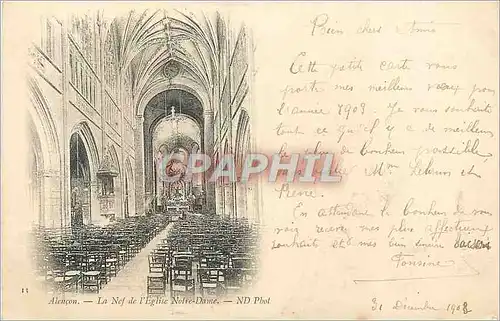 Bien chers Amis
Cette petite carte vous
porte mes meilleurs vœux pour
l'année 1903. Je vous souhaite
tout ce qu'il y a de meilleur
le plus de bonheur possible
Mme Lebrun et
Pierre.
En attendant le bonheur de vous
recevez mes plus affectueux
souhaits et mes bien
31 Décembre 1902
CPAPHIL.com
11
Alençon. — La Nef de l'Église Notre-Dame. — ND Phot